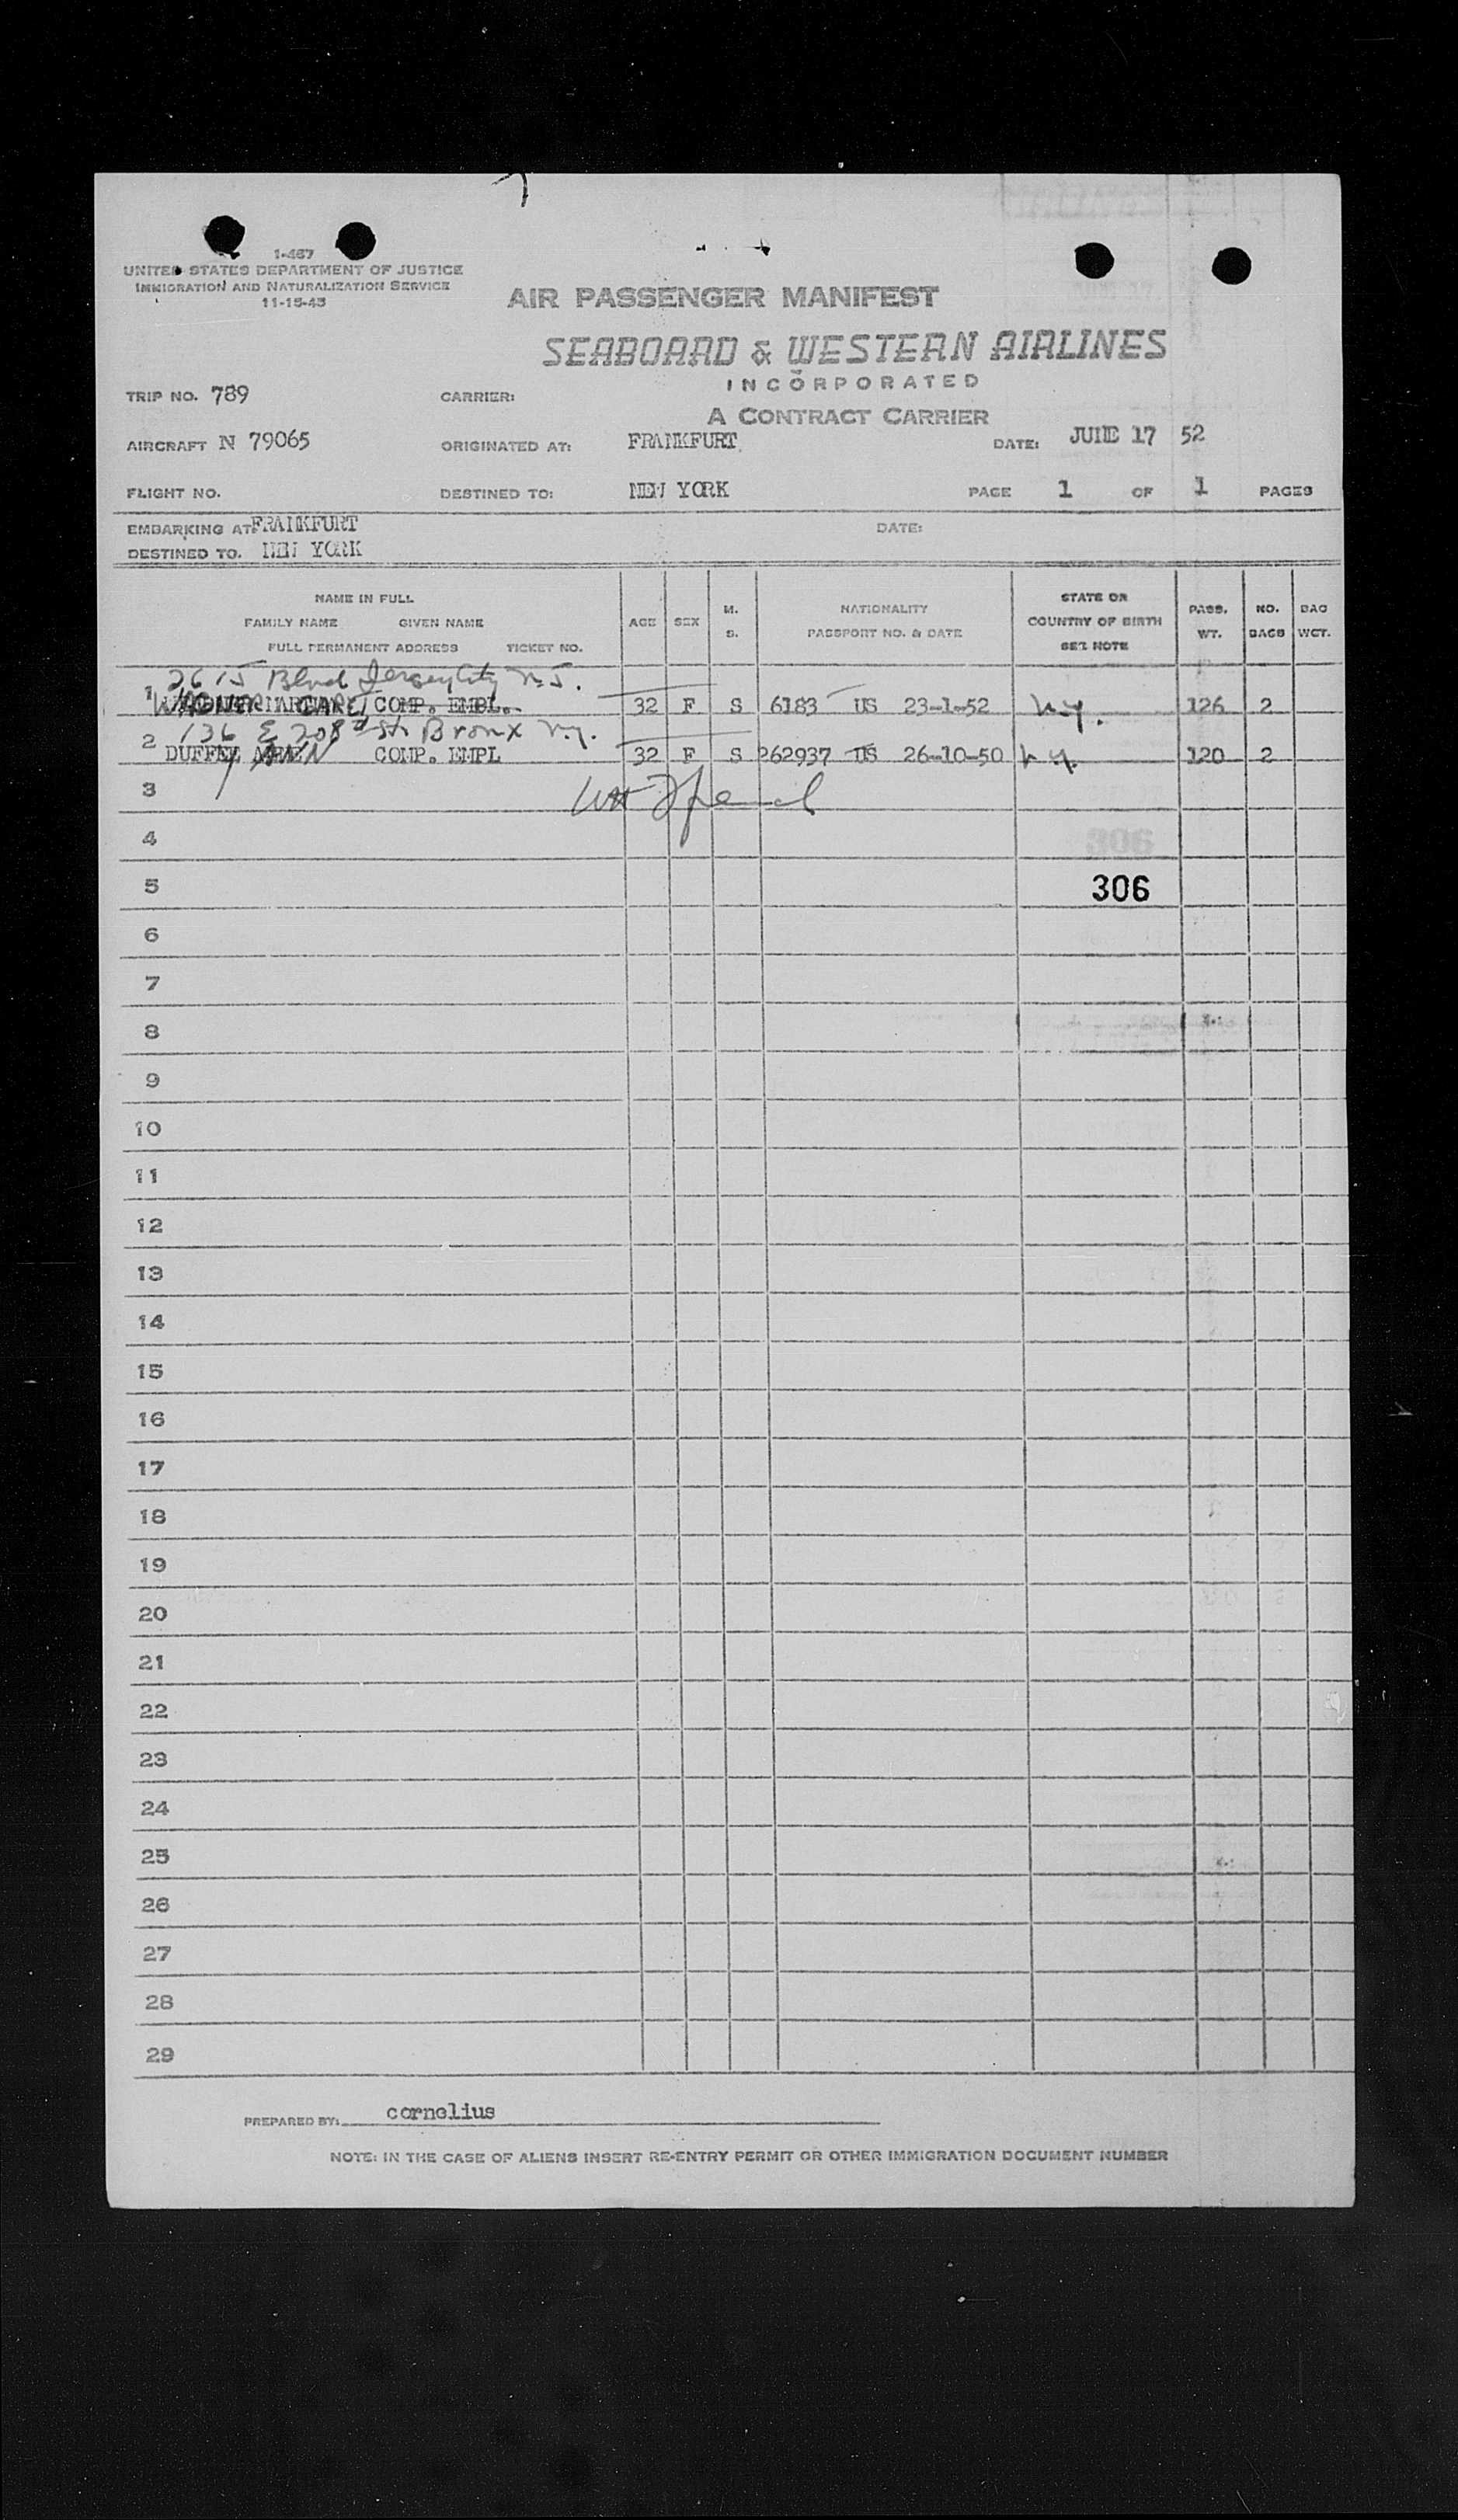 1-467
UNITED STATES DEPARTMENT OF JUSTICE
IMMIGRATION AND NATURALIZATION SERVICE
11-15-43
AIR PASSENGER MANIFEST
SEABOARD & WESTERN AIRLINES
INCORPORATED
A CONTRACT CARRIER
TRIP NO. 789 CARRIER:
AIRCRAFT N 79065 ORIGINATED AT: FRANKFURT DATE: JUNE 17 52
FLIGHT NO. DESTINED TO: NEW YORK PAGE 1 OF 1 PAGES
EMBARKING AT: FRANKFURT DATE:
DESTINED TO. NEW YORK
NAME IN FULL
FAMILY NAME GIVEN NAME
FULL PERMANENT ADDRESS TICKET NO.
AGE SEX M. S.
NATIONALITY
PASSPORT NO. & DATE
STATE OR
COUNTRY OF BIRTH
SEE NOTE
PASS. WT. NO. BAGS BAG WGT.
2615 Blvd Jersey City N.J.
1 COMP. EMPL. 32 F S 6183 US 23-1-52 N.Y. 126 2
136 E 208th St. Bronx N.Y.
2 DUFFEY ANN COMP. EMPL 32 F S 262937 US 26-10-50 N.Y. 120 2
3
4
306
5 306
6
7
8
9
10
11
12
13
14
15
16
17
18
19
20
21
22
23
24
25
26
27
28
29
PREPARED BY: cornelius
NOTE: IN THE CASE OF ALIENS INSERT RE-ENTRY PERMIT OR OTHER IMMIGRATION DOCUMENT NUMBER